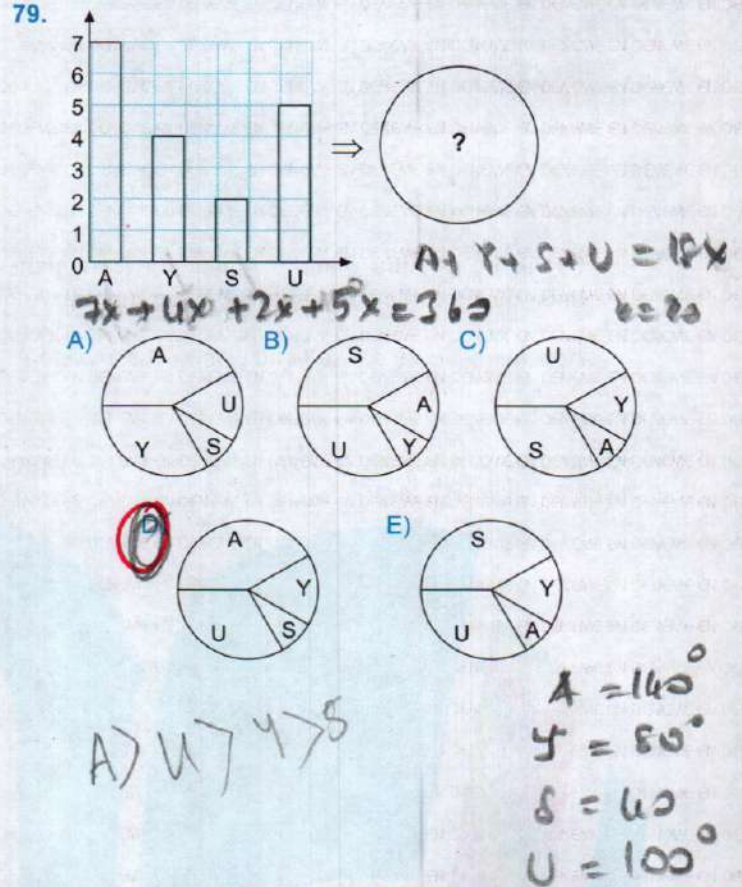 79.
7
6
5
4
3
2
1
0
A Y S U
⇒ ?
A + Y + S + U = 18x
7x + 4x + 2x + 5x = 360
x = 20
A) A U S Y
B) S A Y U
C) U Y A S
D) A Y S U
E) S Y A U
A > U > Y > S
A = 140°
Y = 80°
S = 40
U = 100°